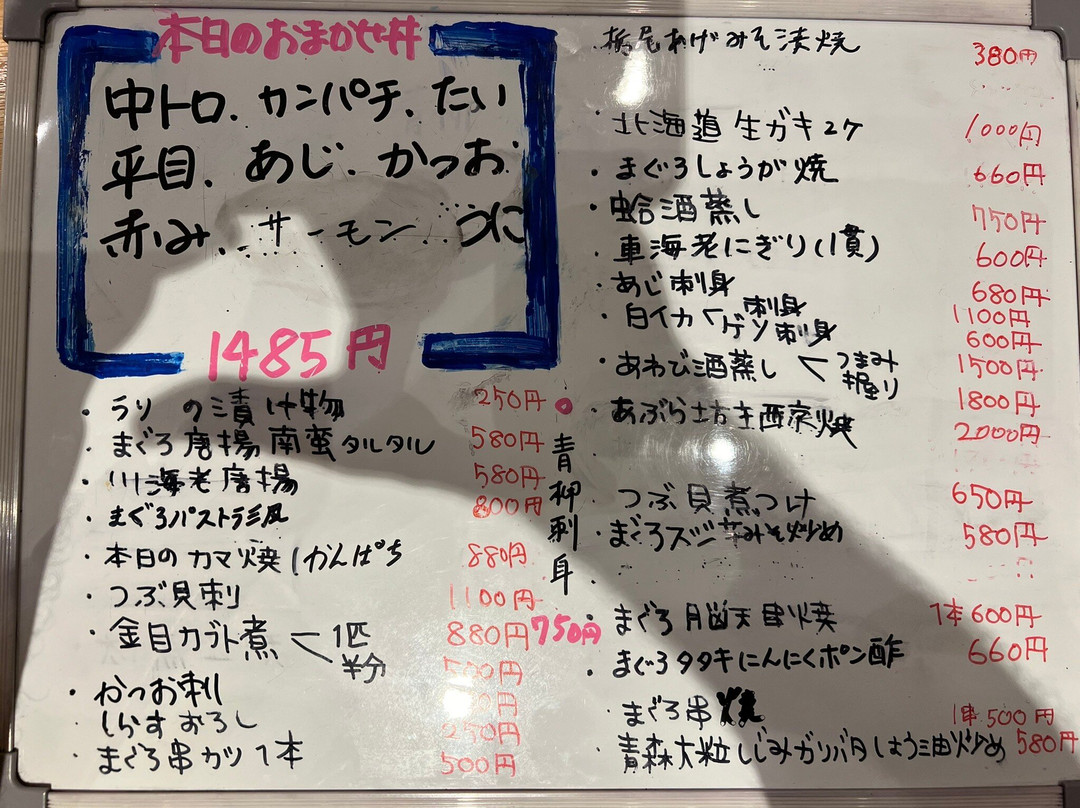 本日のおまかせ丼
中トロ、カンパチ、たい
平目、あじ、かつお
赤み、サーモン、うに
1485円
・うり の漬け物 250円
・まぐろ唐揚南蛮タルタル 580円
・川海老唐揚 580円
・まぐろパストラミ風 800円
・本日のカマ焼 かんぱち 880円
・つぶ貝刺 1100円
・金目カブト煮 1匹 880円
半分 500円
・かつお刺
・しらすおろし 250円
・まぐろ串カツ1本 500円
青柳刺身
750円
栃尾あげみそ漬焼 380円
・北海道生ガキ2ケ 1000円
・まぐろしょうが焼 660円
・蛤酒蒸し 750円
・車海老にぎり(1貫) 600円
・あじ刺身 680円
・白イカ 刺身 1100円
ゲソ刺身 600円
・あわび酒蒸し つまみ 1500円
握り 1800円
・あぶら坊主西京焼 2000円
つぶ貝煮つけ 650円
・まぐろスジ みそ炒め 580円
・まぐろ脳天串焼 1本600円
・まぐろタタキにんにくポン酢 660円
・まぐろ串焼 1串500円
・青森大粒しじみガリバタしょう油炒め 580円